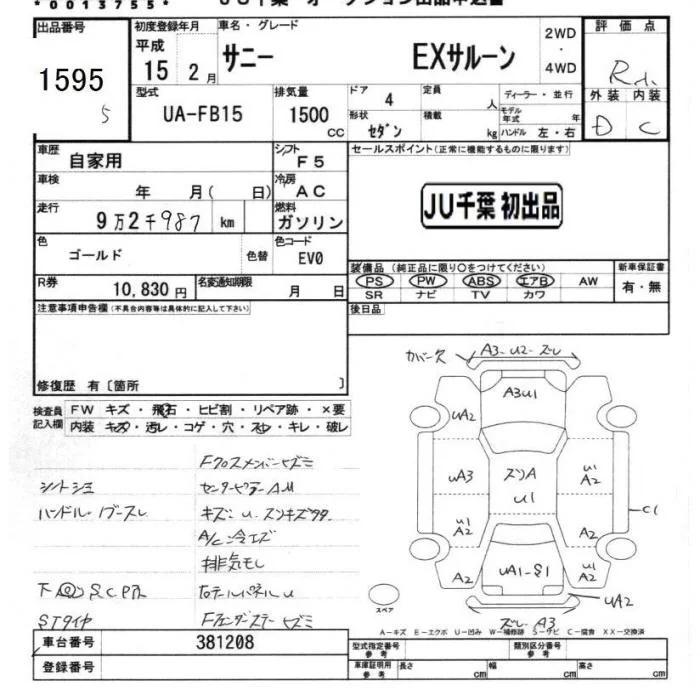 *0013755*
JU千葉 オークション出品申込書
出品番号 初度登録年月 車名・グレード 2WD・4WD 評価点
1595 平成 15年 2月 サニー EXサルーン
5
型式 UA-FB15 排気量 1500 cc
ドア 4 定員 人 ディーラー・並行
形状 セダン 積載 kg モデル年式 年 ハンドル 左・右
外装 内装
D C
車歴 自家用 シフト F5 セールスポイント(正常に機能するものに限ります)
車検 年 月( 日) 冷房 AC
走行 9万2千987 km 燃料 ガソリン
JU千葉 初出品
色 ゴールド 色替 色コード EV0
R券 10,830円 名変通知期限 月 日
装備品(純正品に限り〇をつけてください) 新車保証書
PS PW ABS エアB AW 有・無
SR ナビ TV カワ
注意事項申告欄(不具合内容等は具体的に記入して下さい)
後日品
修復歴 有〔箇所 〕
検査員記入欄 FW キズ・飛石・ヒビ割・リペア跡・×要
内装 キズ・汚レ・コゲ・穴・スレ・キレ・破レ
カバー欠 A3-U2-ズレ
A3U1
UA2
UA3 ズリA U1 U1 A2
U1 A2 A2 C1
A2 UA1-S1 A2
UA2
ズレ-A3
スペア
A-キズ E-エクボ U-凹み W-補修跡 S-サビ C-腐食 XX-交換済
Fクロスメンバーキズミ
シートシミ
A/C冷エズ
排気モレ
STタイヤ
車台番号 381208
登録番号
型式指定番号 参考 類別区分番号 参考
車庫証明用 参考 長さ cm 幅 cm 高さ cm